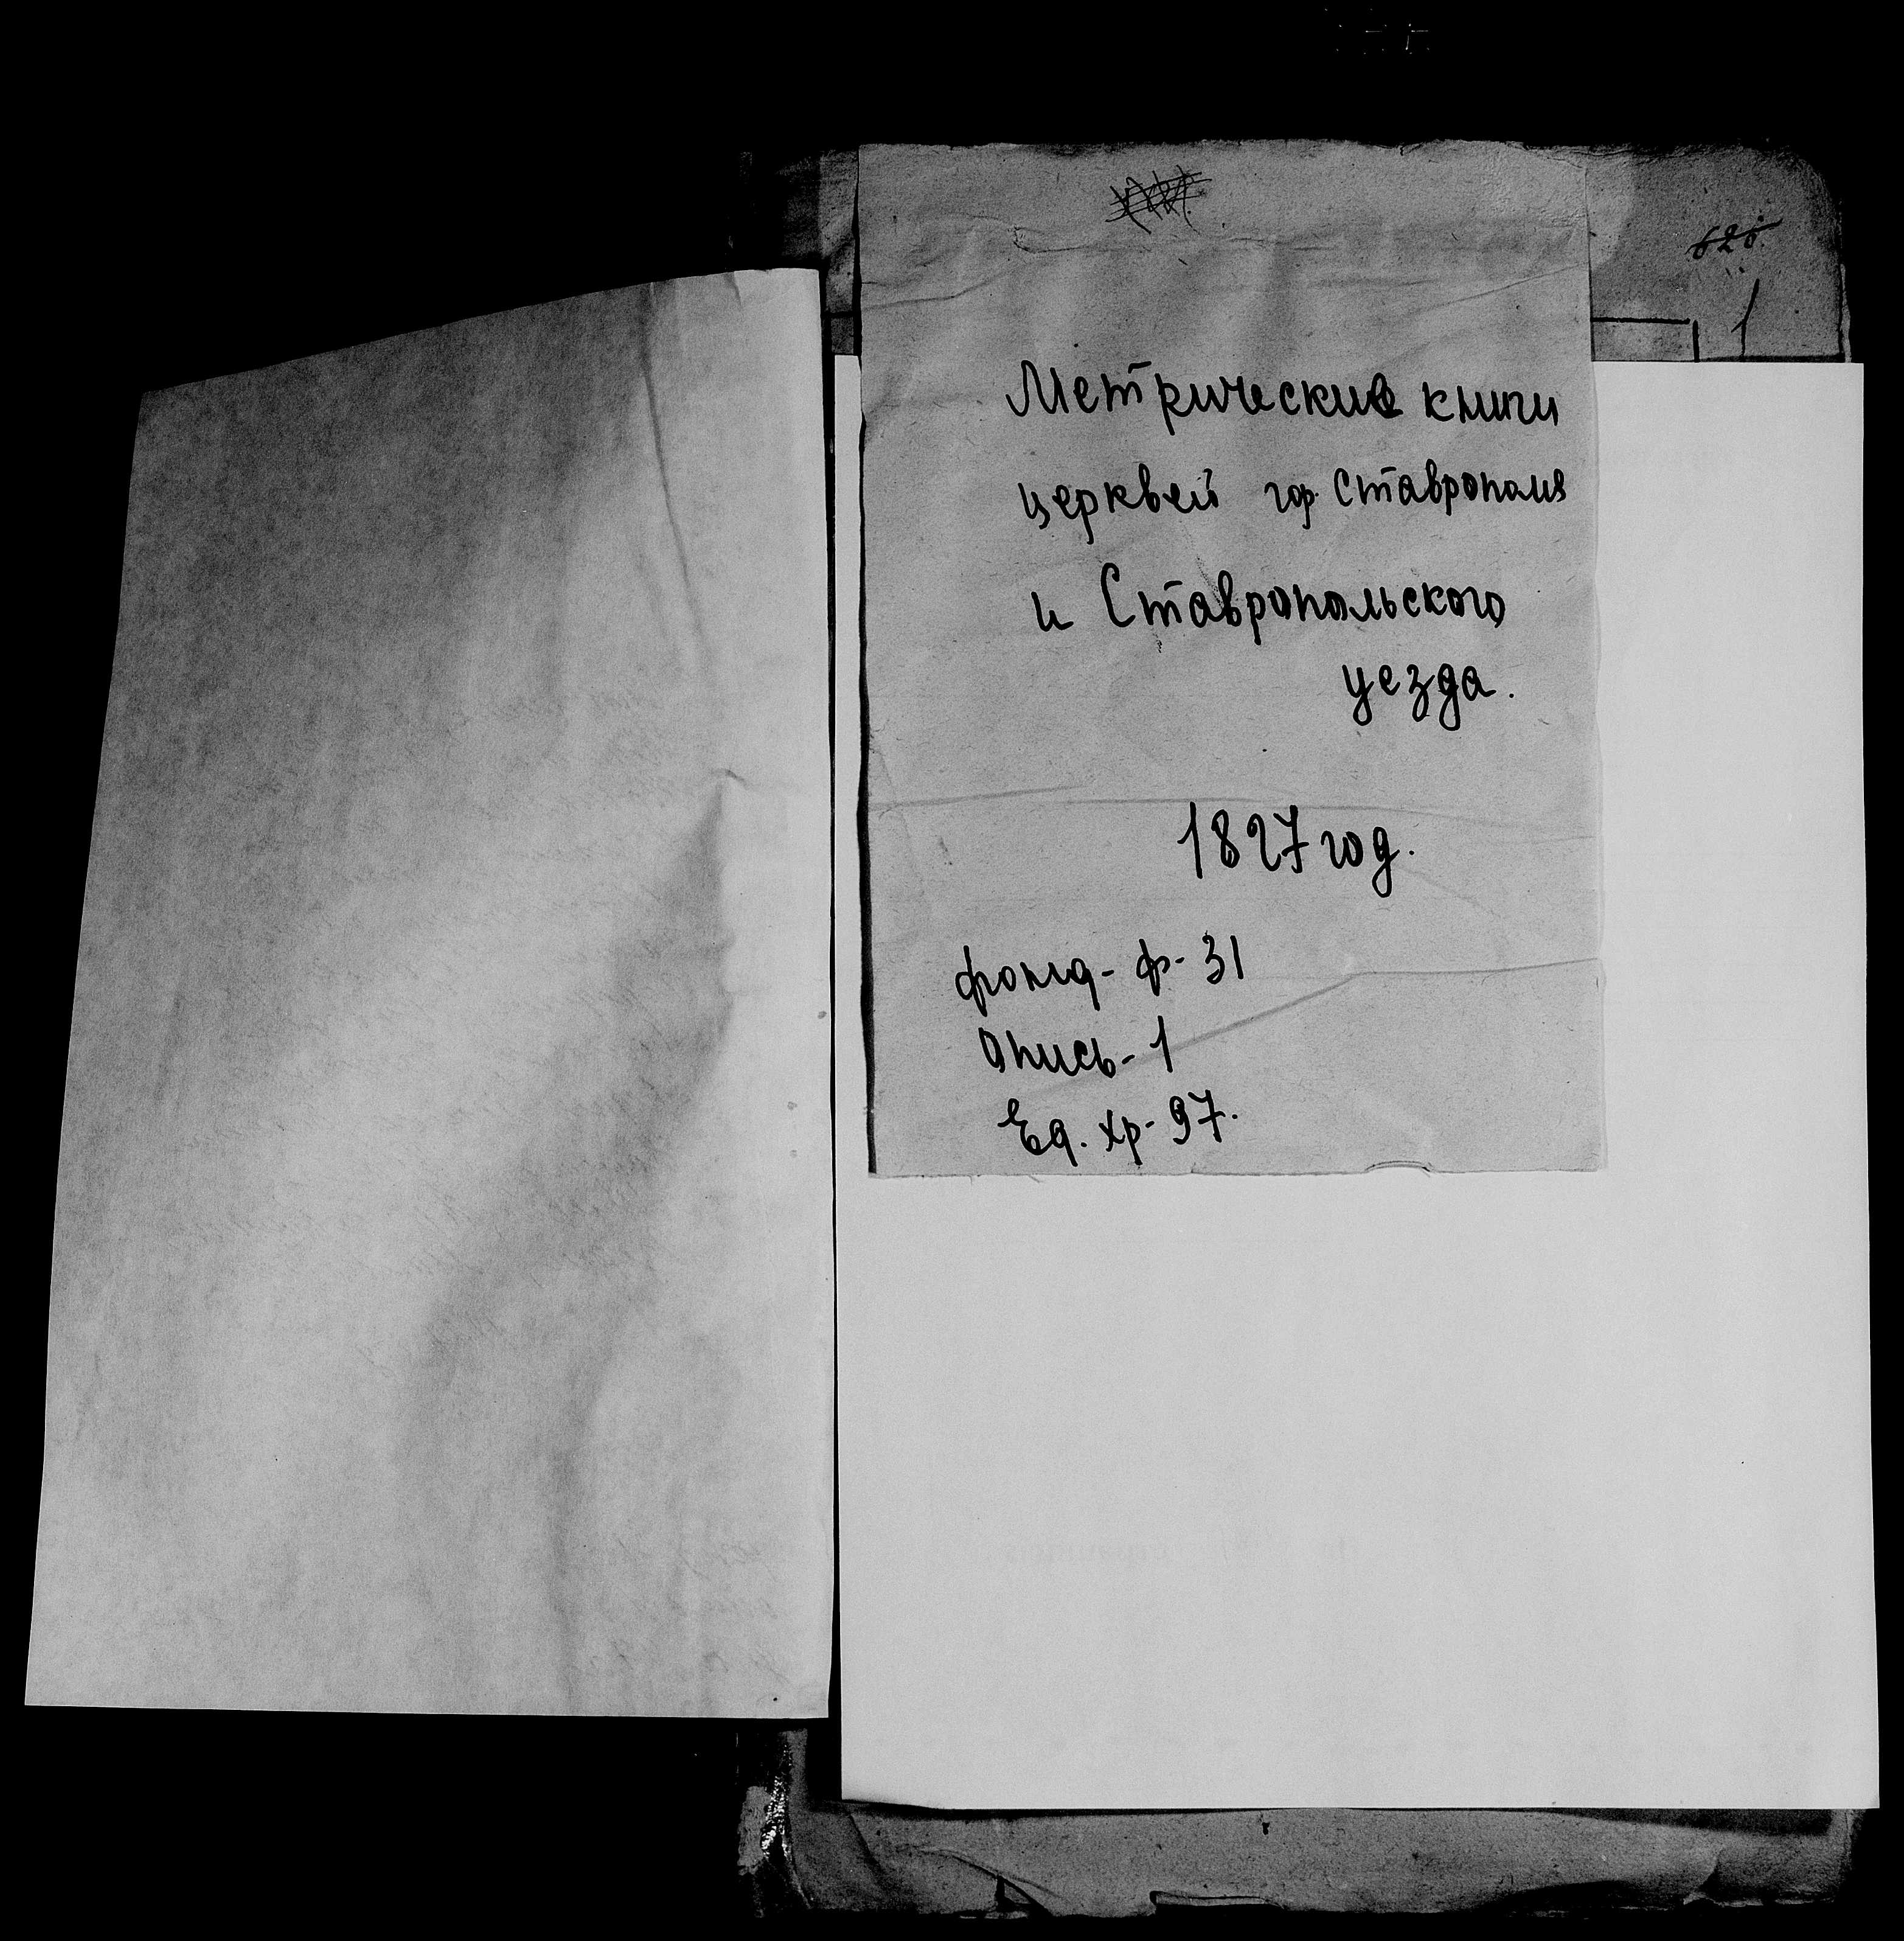 626
1
Метрические книги
церквей гор. Ставрополя
и Ставропольского
уезда.
1827 год.
фонд - ф - 31
Опись - 1
Ед. хр - 97.